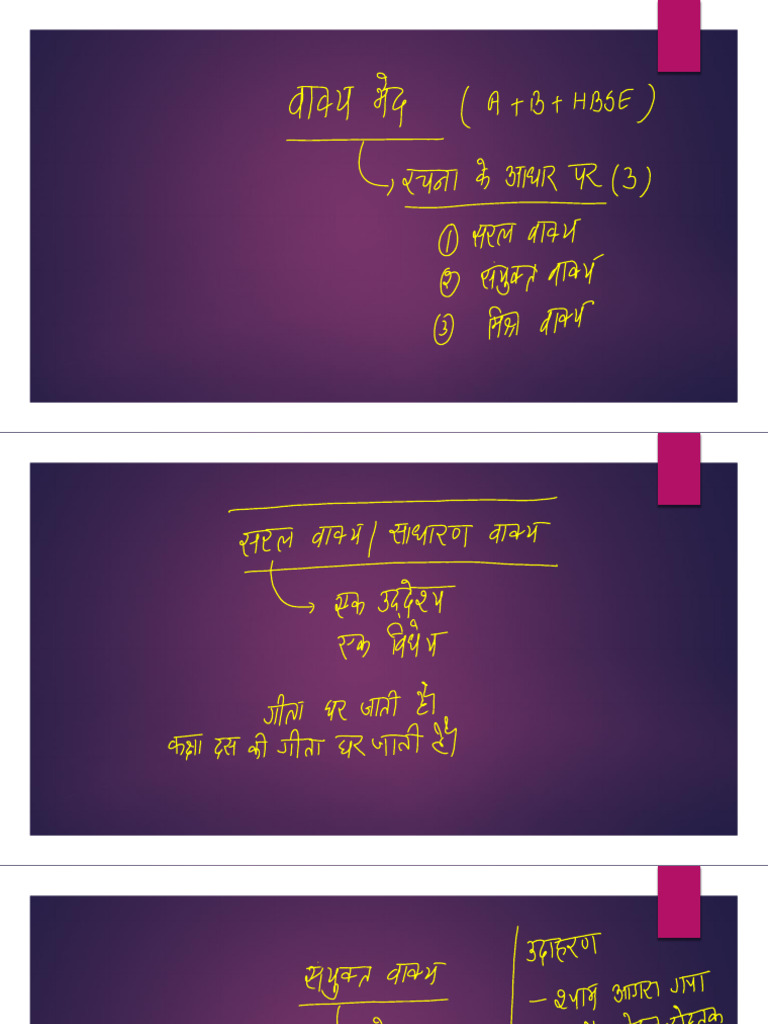 वाक्य भेद (A + B + HBSE)
रचना के आधार पर (3)
① सरल वाक्य
② संयुक्त वाक्य
③ मिश्र वाक्य
सरल वाक्य / साधारण वाक्य
एक उद्देश्य
एक विधेय
गीता घर जाती है।
कक्षा दस की गीता घर जाती है।
संयुक्त वाक्य
उदाहरण
– श्याम आगरा गया